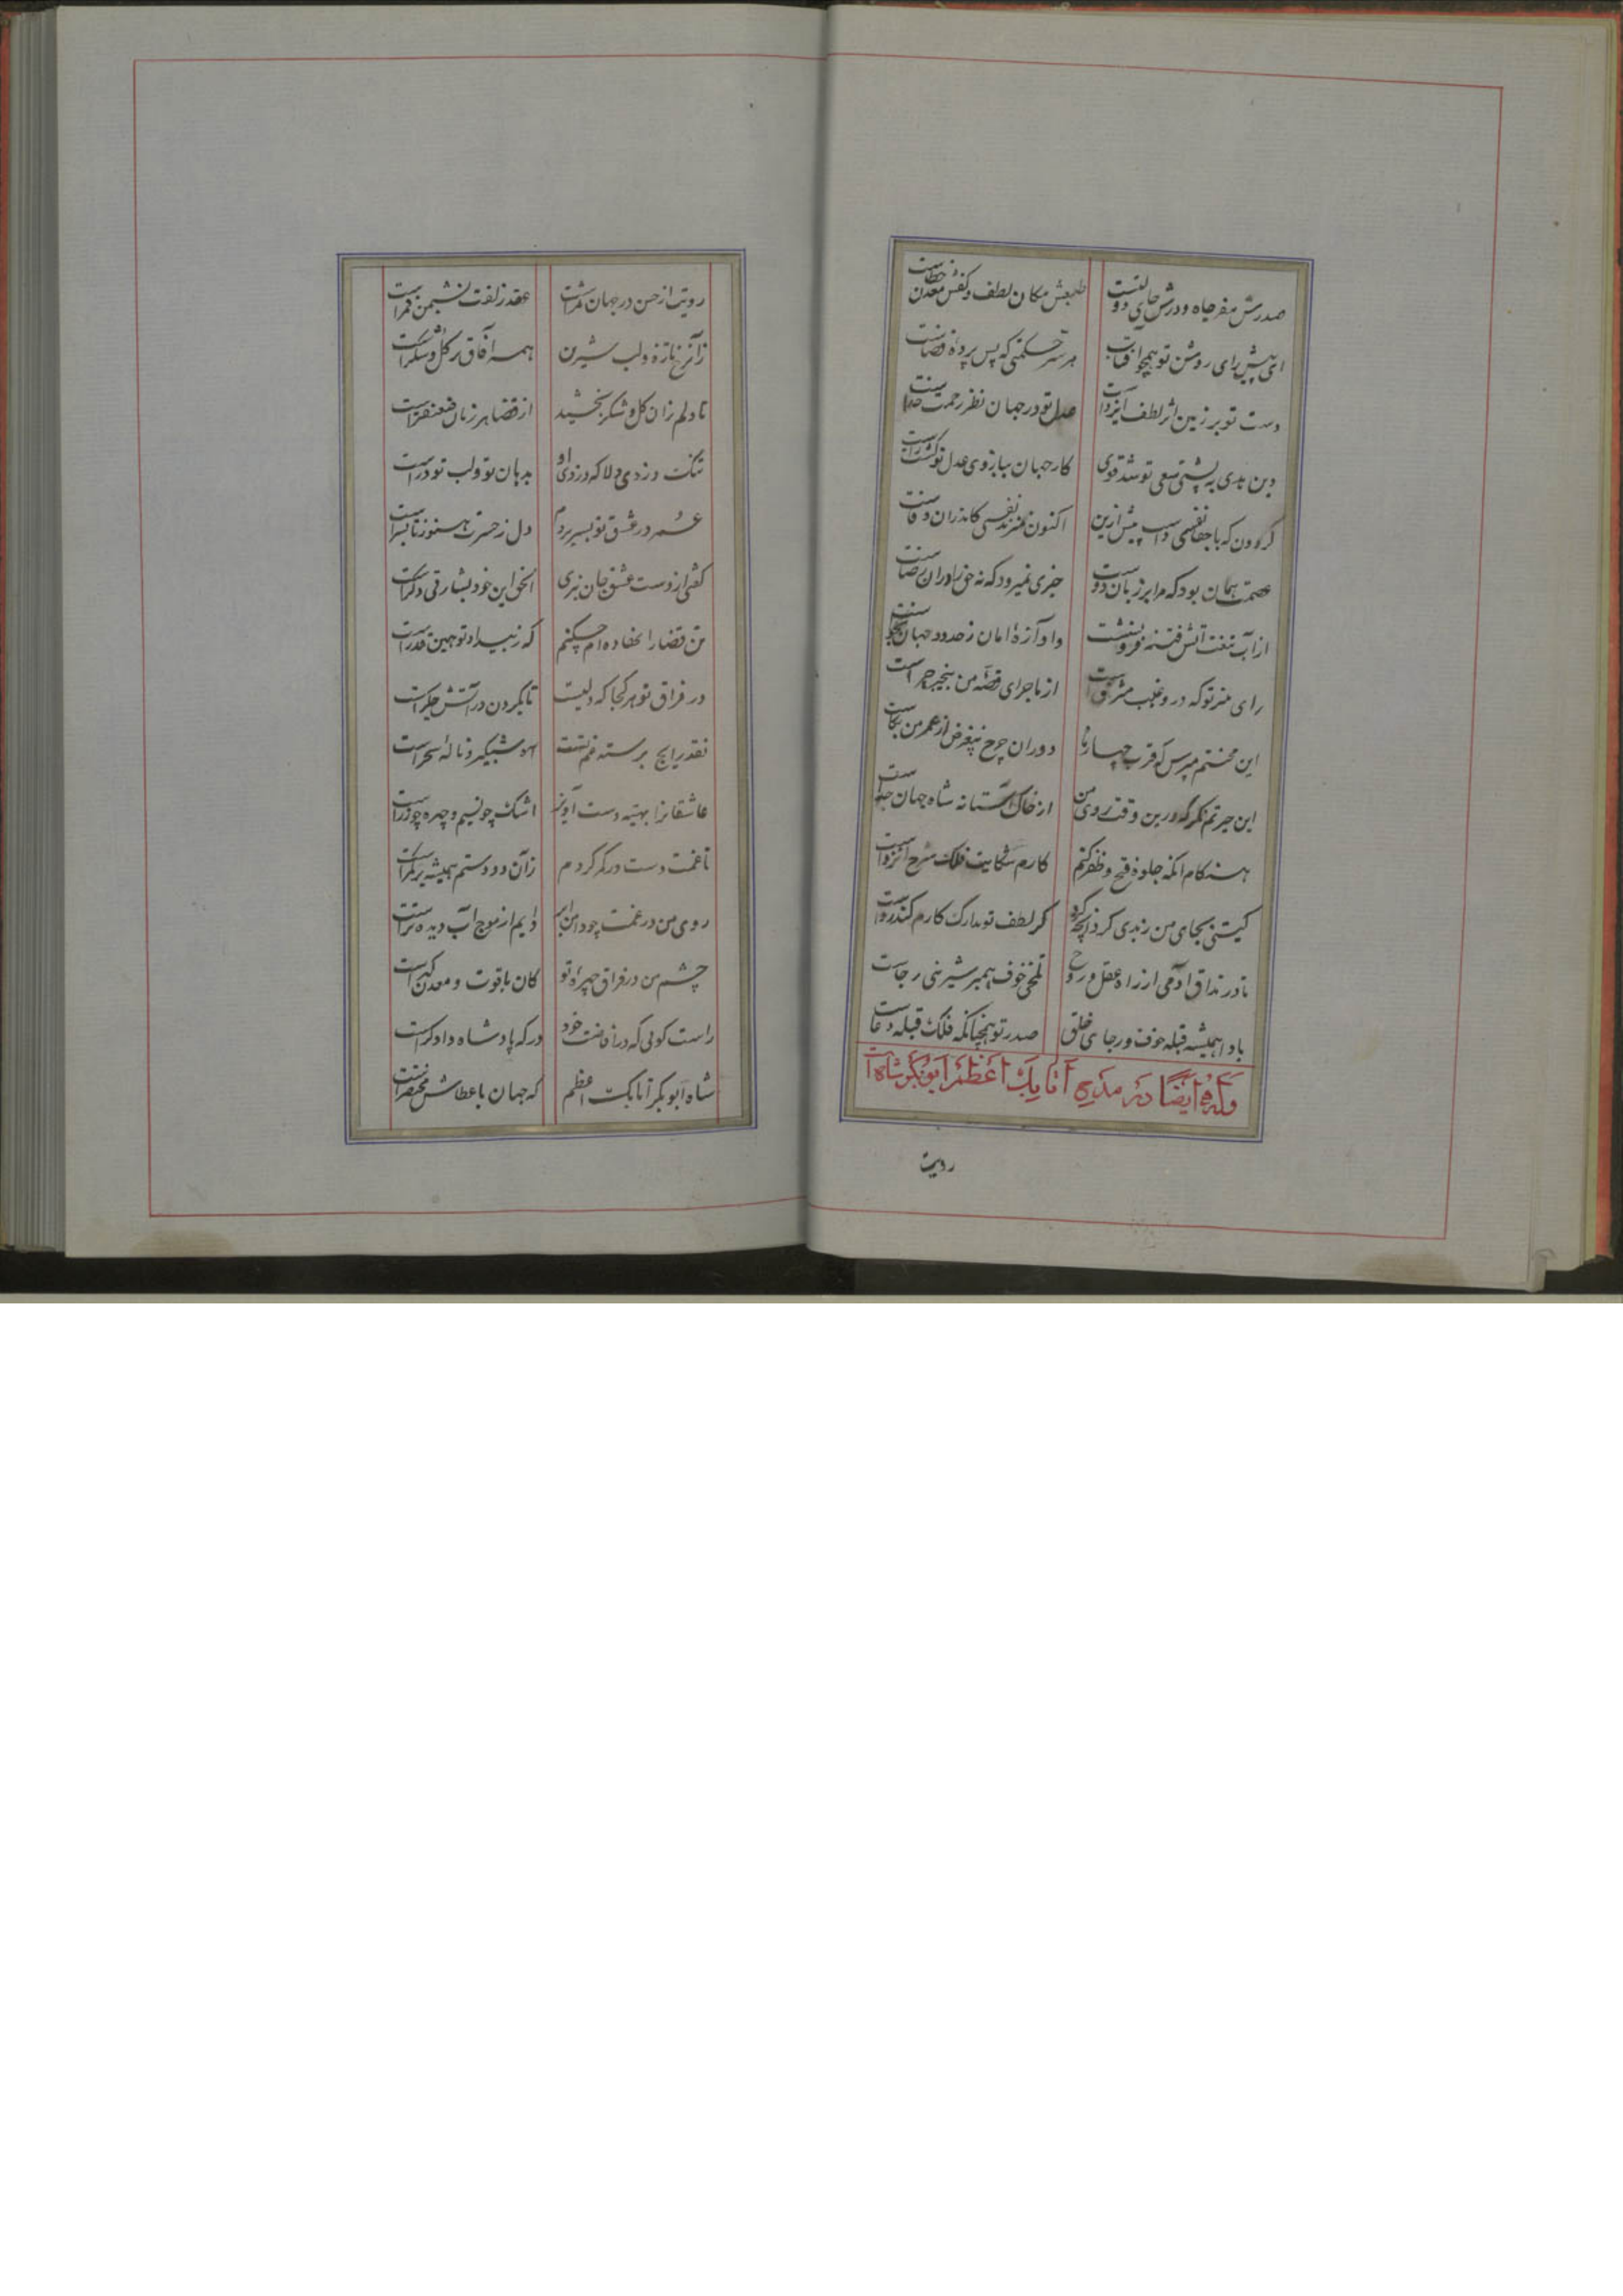 صدرش مقر جاه و درش جای دولتست طبعش مکان لطف و کفش معدن سخاست
ای پیش رای روشن تو همچو آفتاب هر سر حکمتی که پس پرده قضاست
دست تو بر زمین اثر لطف ایزدست عدل تو در جهان نظر رحمت خداست
دین هدی به پشتی سعی تو شد قوی کار جهان ببازوی عدل تو گشت راست
گردون که با جفا نفسی داشت پیش ازین اکنون نمیزند نفسی کاندران وفاست
عصمت همان بود که مرا بر زبان دوست چیزی نمیرود که نه حق را دران رضاست
از آب تیغت آتش فتنه فرونشست و آوازه امان ز حدود جهان بخواست
رای منیر تو که درو غیب مشرقست از ماجرای قصه من بیخبر چراست
این محنتم مپرس که قرب چهار ماه دوران چرخ بیغرض از عمر من بکاست
این حیرتم نگر که درین وقت روی من از خاک آستانه شاه جهان جداست
هنگام آنکه جلوه فتح و ظفر کنم کارم شکایت فلک و شرح انزواست
گیتی بجای من ز بدی کرد آنچه کرد گر لطف تو تدارک کارم کند رواست
تا در مذاق آدمی از راه عقل و روح تلخی خوف همبر شیرینی رجاست
بادا همیشه قبله خوف و رجای خلق صدر تو همچنانکه فلک قبله دعاست
وله ایضا در مدح اتابک اعظم ابوبکر شاه است
رویت
رویت از حسن در جهان سمرست عقد زلفت نشیمن قمرست
زآن رخ تازه و لب شیرین همه آفاق پر گل و شکرست
تا دلم زان گل و شکر بخشید از قضا هر زمان ضعیفترست
تنگ دزدی دلا که دزدی او بدهان تو و لب تو درست
عمر در عشق تو بسر بردم دل ز حسرت هنوز تا بسرست
گفتی از دست عشق جان نبری الحق این خود بشارتی دگرست
تن قضا را نهاده‌ام چکنم که ز بیداد تو همین قدرست
در فراق تو هر کجا که دلیست تا بگردن در آتش جگرست
نقد رایج بر سته غم تست آه شبگیر و ناله سحرست
عاشقانرا بهینه دست آویز اشک چون سیم و چهره چو زرست
تا غمت دست در کمر کردم زآن دو دستم همیشه بر کمرست
روی من در غمت چو دامن ابر دایم از موج آب دیده ترست
چشم من در فراق چهره تو کان یاقوت و معدن گهرست
راست گویی که در افاضت خود درگه پادشاه دادگرست
شاه ابوبکر اتابک اعظم که جهان با عطاش مختصرست